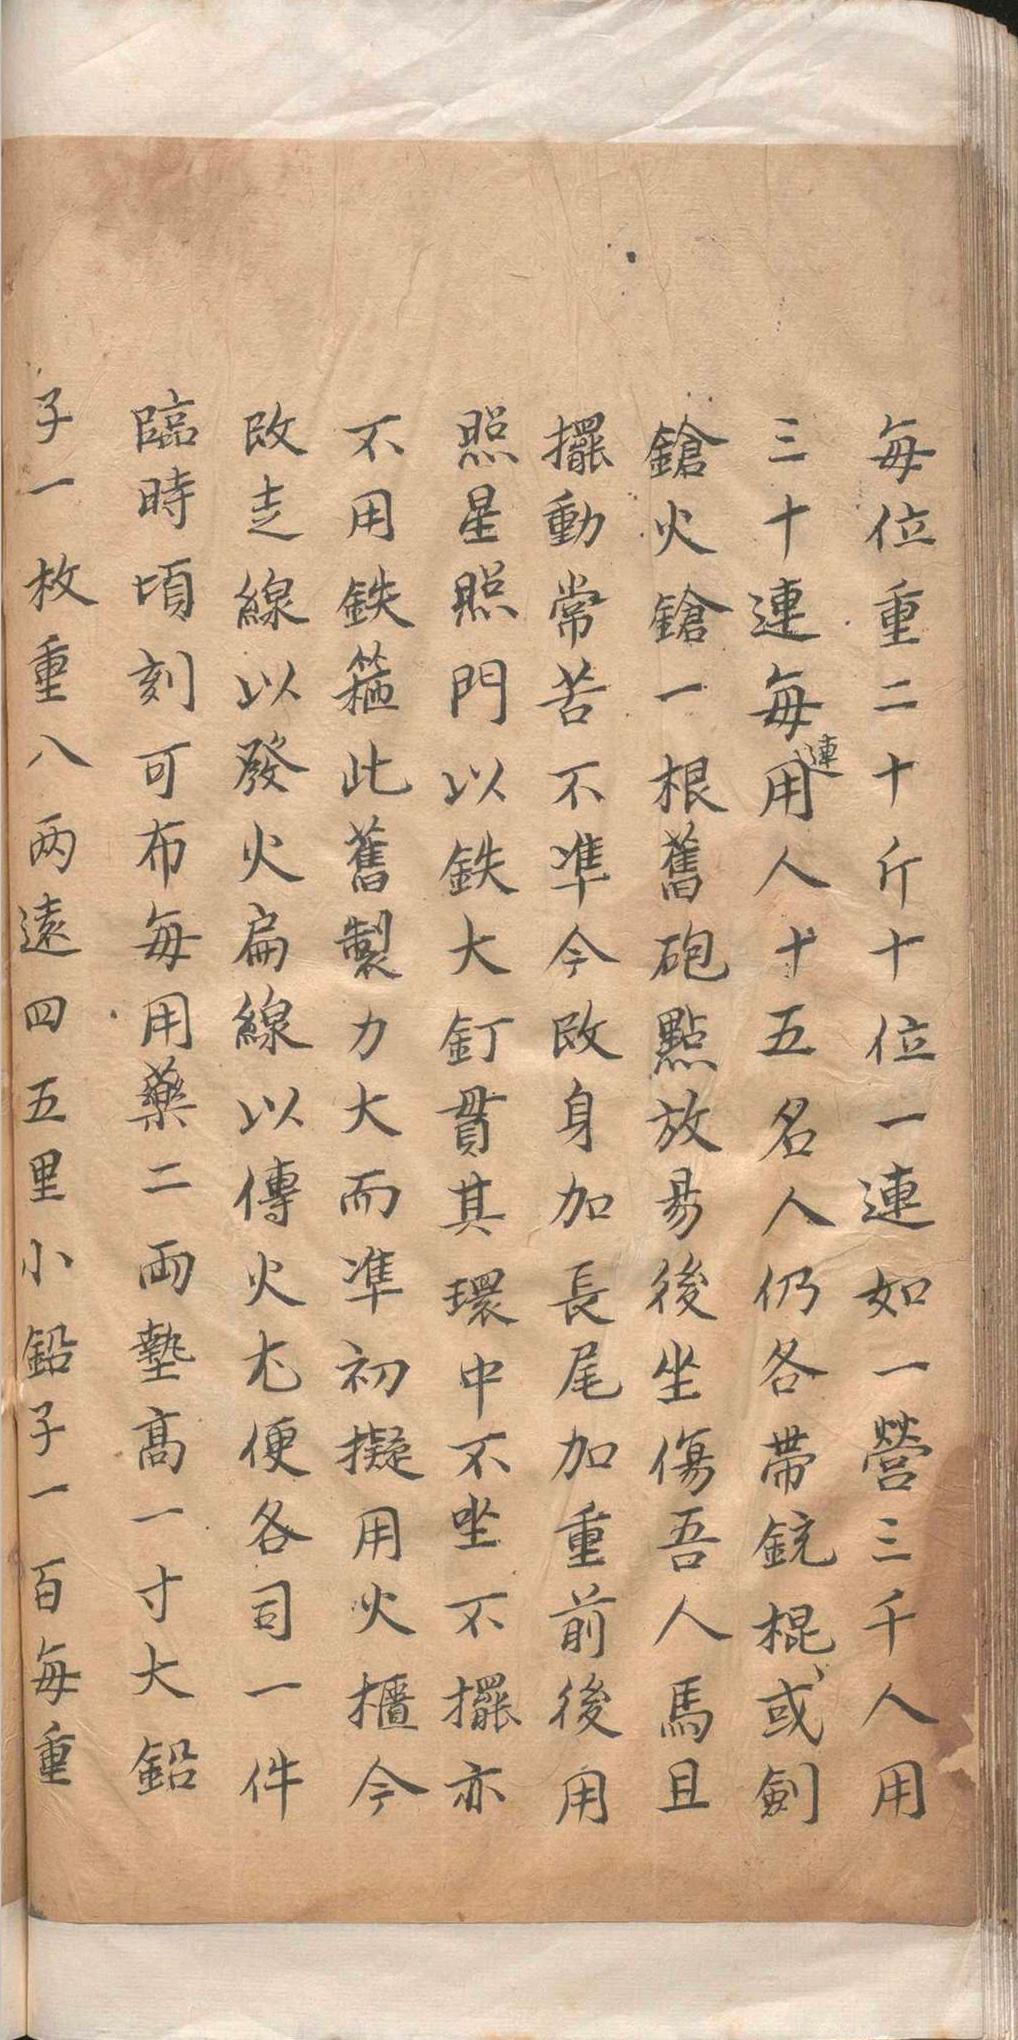 每位重二十斤十位一連如一營三千人用
三十連每連用人十五名人仍各帶銃棍或劍
鎗火鎗一根舊砲點放易後坐傷吾人馬且
擺動常苦不準今改身加長尾加重前後用
照星照門以鉄大釘貫其環中不坐不擺亦
不用鉄箍此舊製力大而準初擬用火櫃今
改走線以發火扁線以傳火尤便各司一件
臨時頃刻可布每用藥二両墊高一寸大鉛
子一枚重八两遠四五里小鉛子一百每重